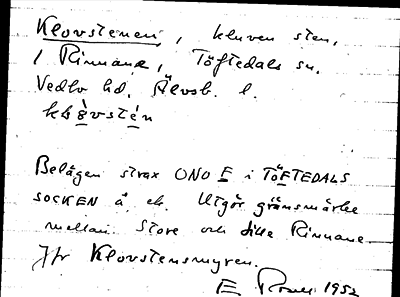 Klovstenen, kluven sten,
i Rinnane, Töftedals sn.
Vedbo hd. Älvsb. l.
Belägen strax ONO E i TÖFTEDALS
SOCKEN å ek. Utgör gränsmärke
mellan Store och Lille Rinnane
Jfr Klovstensmyren.
E 1952